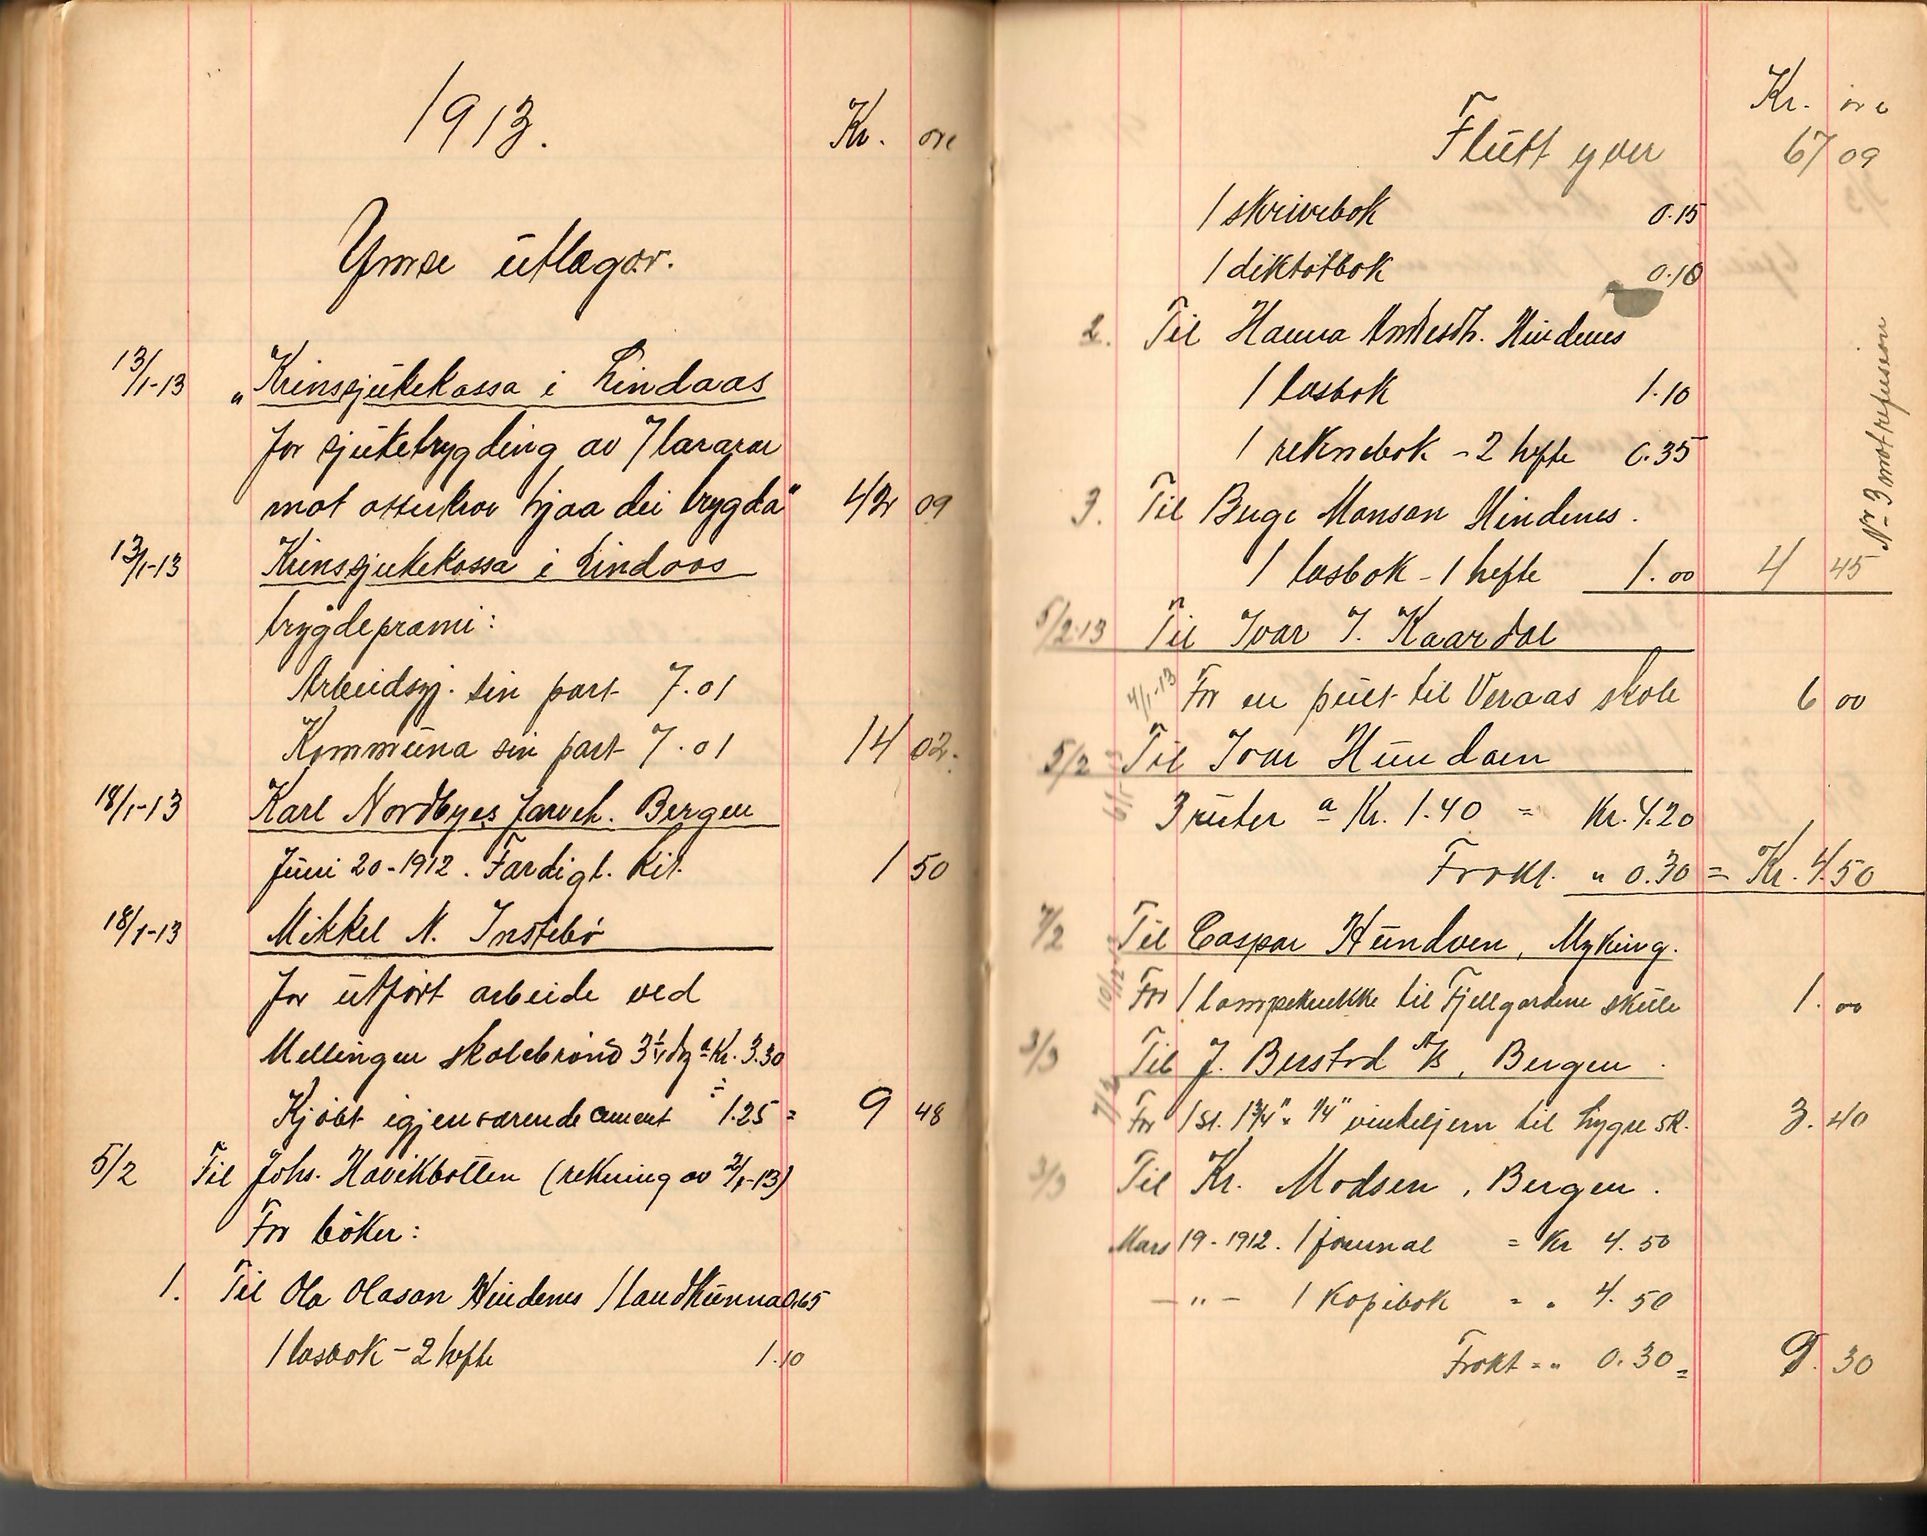 1913.
Kr. øre
Ymse utlagor.
13/1-13 „Krinssjukekassa i Lindaas
for sjuketrygding av 7 lærarar
mot atterkrav hjaa dei trygda" 42 09
13/1-13 Krinssjukekassa i Lindaas
trygdepræmi:
Arbeidsgj. sin part 7.01
Kommuna sin part 7.01 14 02.
18/1-13 Karl Nordbyes farveh. Bergen
Juni 20-1912. Færdigt. Kit. 1 50
18/1-13 Mikkel N. Instebø
for utført arbeide ved
Mellingen skolebrønd 3 1/4 dg a Kr. 3.30
Kjøbt igjenværende cement ÷ 1.25 = 9 48
5/2 Til Johs. Havikbotten (rekning av 2/1-13)
For bøker:
1. Til Ola Olason Hindenes 1 landkunna 0.65
1 læsbok - 2 hefte 1.10
Kr. øre
Flutt yver 67 09
1 skrivebok 0.15
1 diktatbok 0.10
2. Til Hanna Andresdt. Hindenes
1 læsbok 1.10
1 reknebok - 2 hefte 0.35
3. Til Børge Monson Hindenes.
1 læsbok - 1 hefte 1.00 4 45
Nr 3 mot refusion
5/2-13 Til Ivar J. Kaardal
4/1-13 For en pult til Veraas skole 6 00
5/2 Til Ivar Hundven
3 ruter a Kr. 1.40 = Kr. 4.20
Frakt. „ 0.30 = Kr. 4.50
7/2 Til Caspar Hundven, Myking.
10/12 For 1 lampekukke til Fjellgardene skule 1.00
3/3 Til J. Berstad A/S, Bergen.
For 1 st. 1 3/4" × 1/4" vinkeljern til Lygre sk. 3.40
3/3 Til Kr. Madsen, Bergen.
Mars 19-1912. 1 journal = Kr 4.50
— „ — 1 Kopibok = „ 4.50
Frakt = „ 0.30 = 9.30